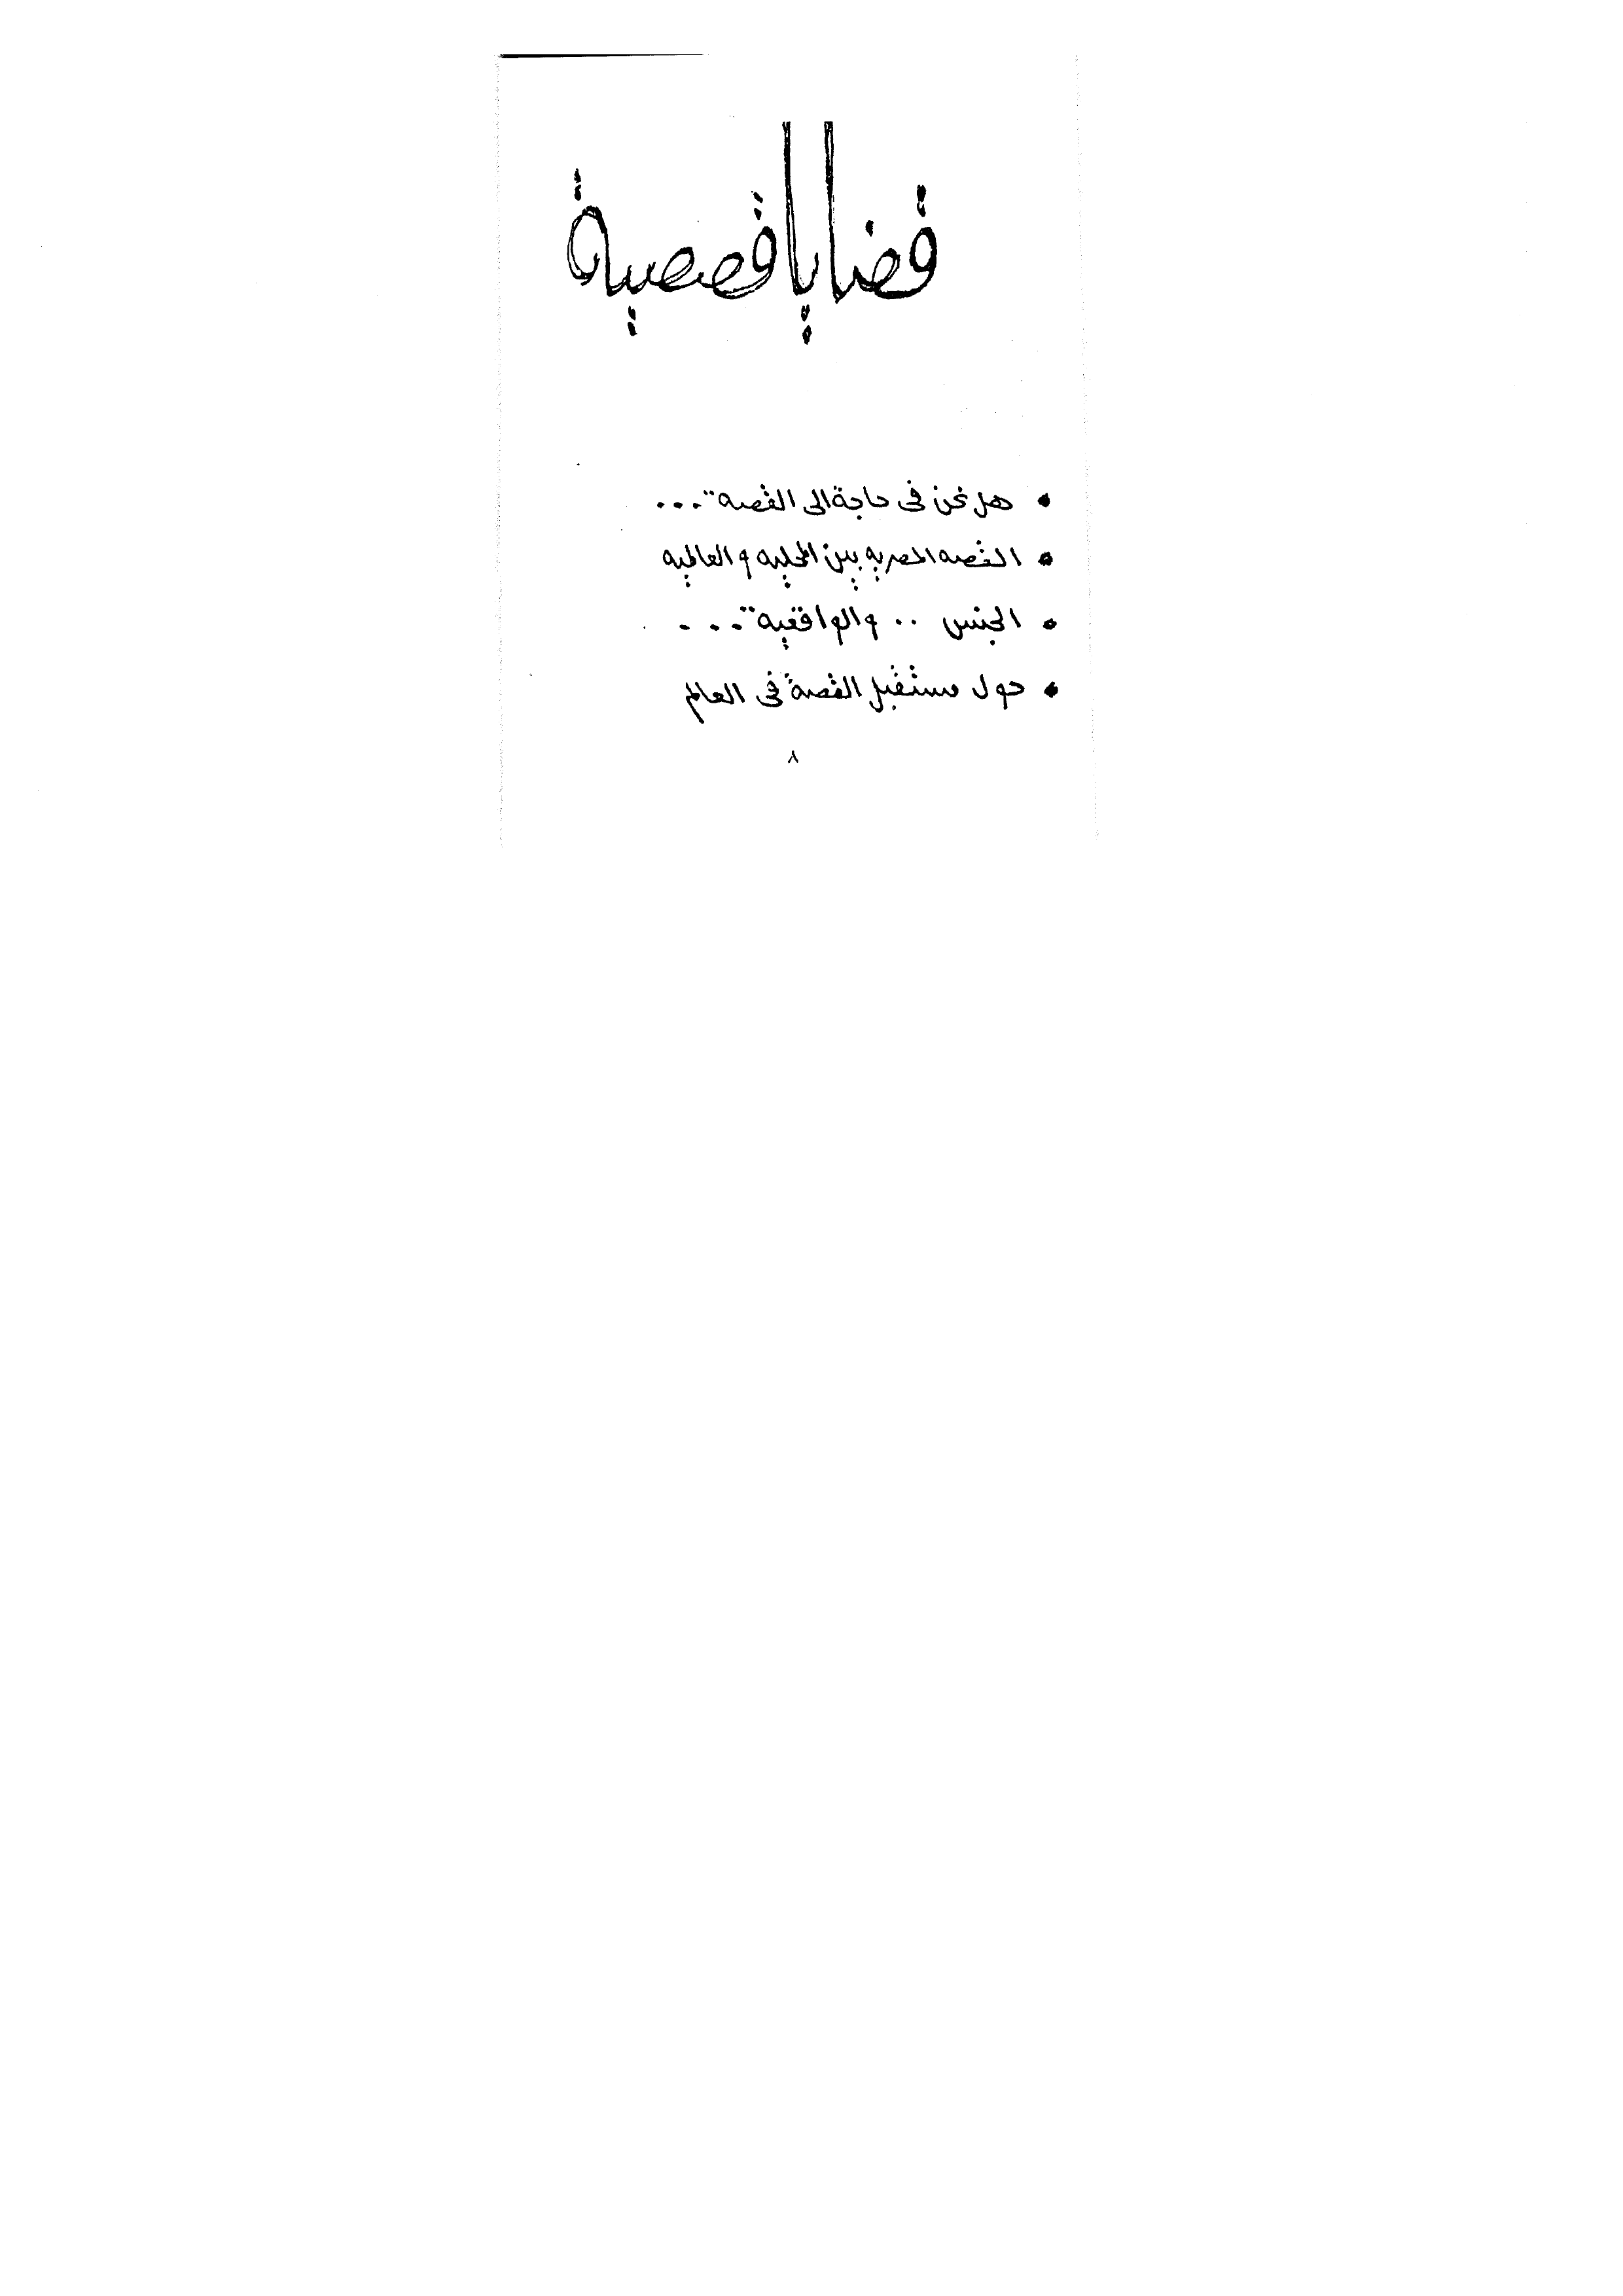 قضايا قصصية
• هل نحن فى حاجة الى القصة ...
• القصه المصريه بين المحليه والعالميه
• الجنس .. والواقعية ...
• حول مستقبل القصة فى العالم
٨